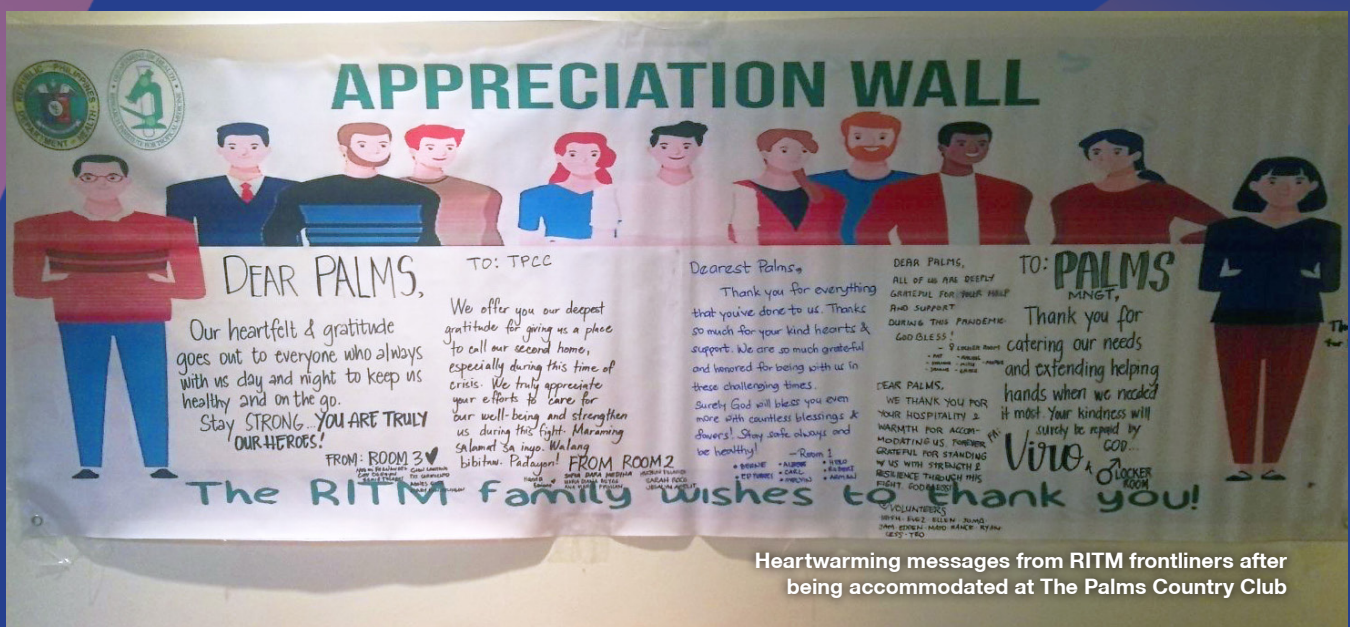 APPRECIATION WALL
REPUBLIC PHILIPPINES
DEPARTMENT OF HEALTH
DEAR PALMS,
Our heartfelt & gratitude
goes out to everyone who always
with us day and night to keep us
healthy and on the go.
Stay STRONG... YOU ARE TRULY
OUR HEROES!
FROM: ROOM 3
TO: TPCC
We offer you our deepest
gratitude for giving us a place
to call our second home,
especially during this time of
crisis. We truly appreciate
your efforts to care for
our well-being and strengthen
us during this fight. Maraming
Salamat sa inyo. Walang
bibitaw. Padayon! FROM ROOM 2
Dearest Palms,
Thank you for everything
that you've done to us. Thanks
so much for your kind hearts &
support. We are so much grateful
and honored for being with us in
these challenging times.
Surely God will bless you even
more with countless blessings &
favors! Stay safe always and
be healthy!
- Room 1
DEAR PALMS,
ALL OF US ARE DEEPLY
GRATEFUL FOR YOUR HELP
AND SUPPORT
DURING THIS PANDEMIC.
GOD BLESS!
DEAR PALMS,
WE THANK YOU FOR
YOUR HOSPITALITY &
WARMTH FOR ACCOM-
MODATING US. FOREVER
GRATEFUL FOR STANDING
W/ US WITH STRENGTH &
RESILIENCE THROUGH THIS
FIGHT. GOD BLESS!
VOLUNTEERS
TO: PALMS
MNGT,
Thank you for
catering our needs
and extending helping
hands when we needed
it most. Your kindness will
surely be repaid by
GOD...
FR: Viro
♂ LOCKER
ROOM
The RITM family wishes to thank you!
Heartwarming messages from RITM frontliners after
being accommodated at The Palms Country Club